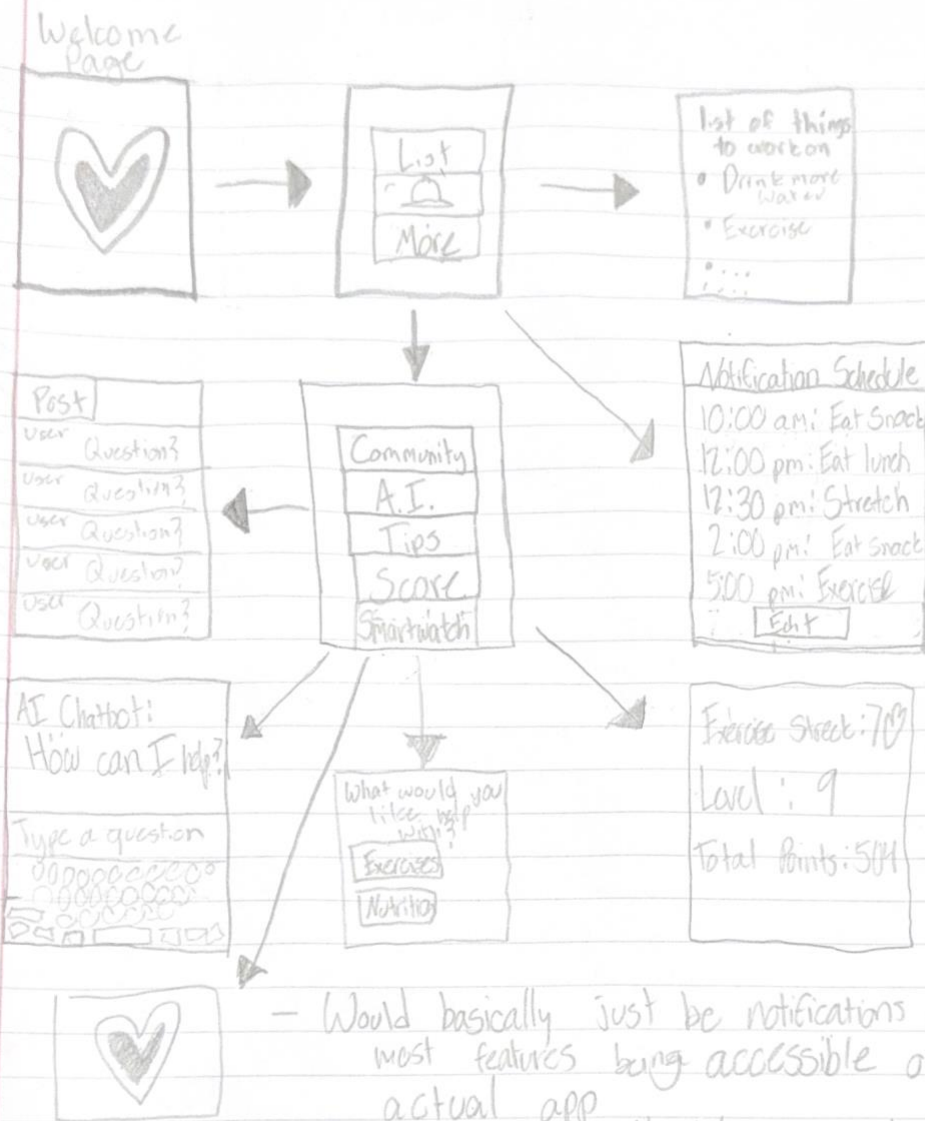 Welcome
Page
List
More
list of things
to work on
• Drink more
water
• Exercise
• ...
Post
user
Question?
user
Question?
user
Question?
user
Question?
user
Question?
Community
A.I.
Tips
Score
Smartwatch
Notification Schedule
10:00 am: Eat Snack
12:00 pm: Eat lunch
12:30 pm: Stretch
2:00 pm: Eat snack
5:00 pm: Exercise
Edit
AI Chatbot:
How can I help?
Type a question
What would you
like help
with?
Exercises
Nutrition
Exercise Streak:
Level : 9
Total Points: 504
- Would basically just be notifications
most features being accessible
actual app